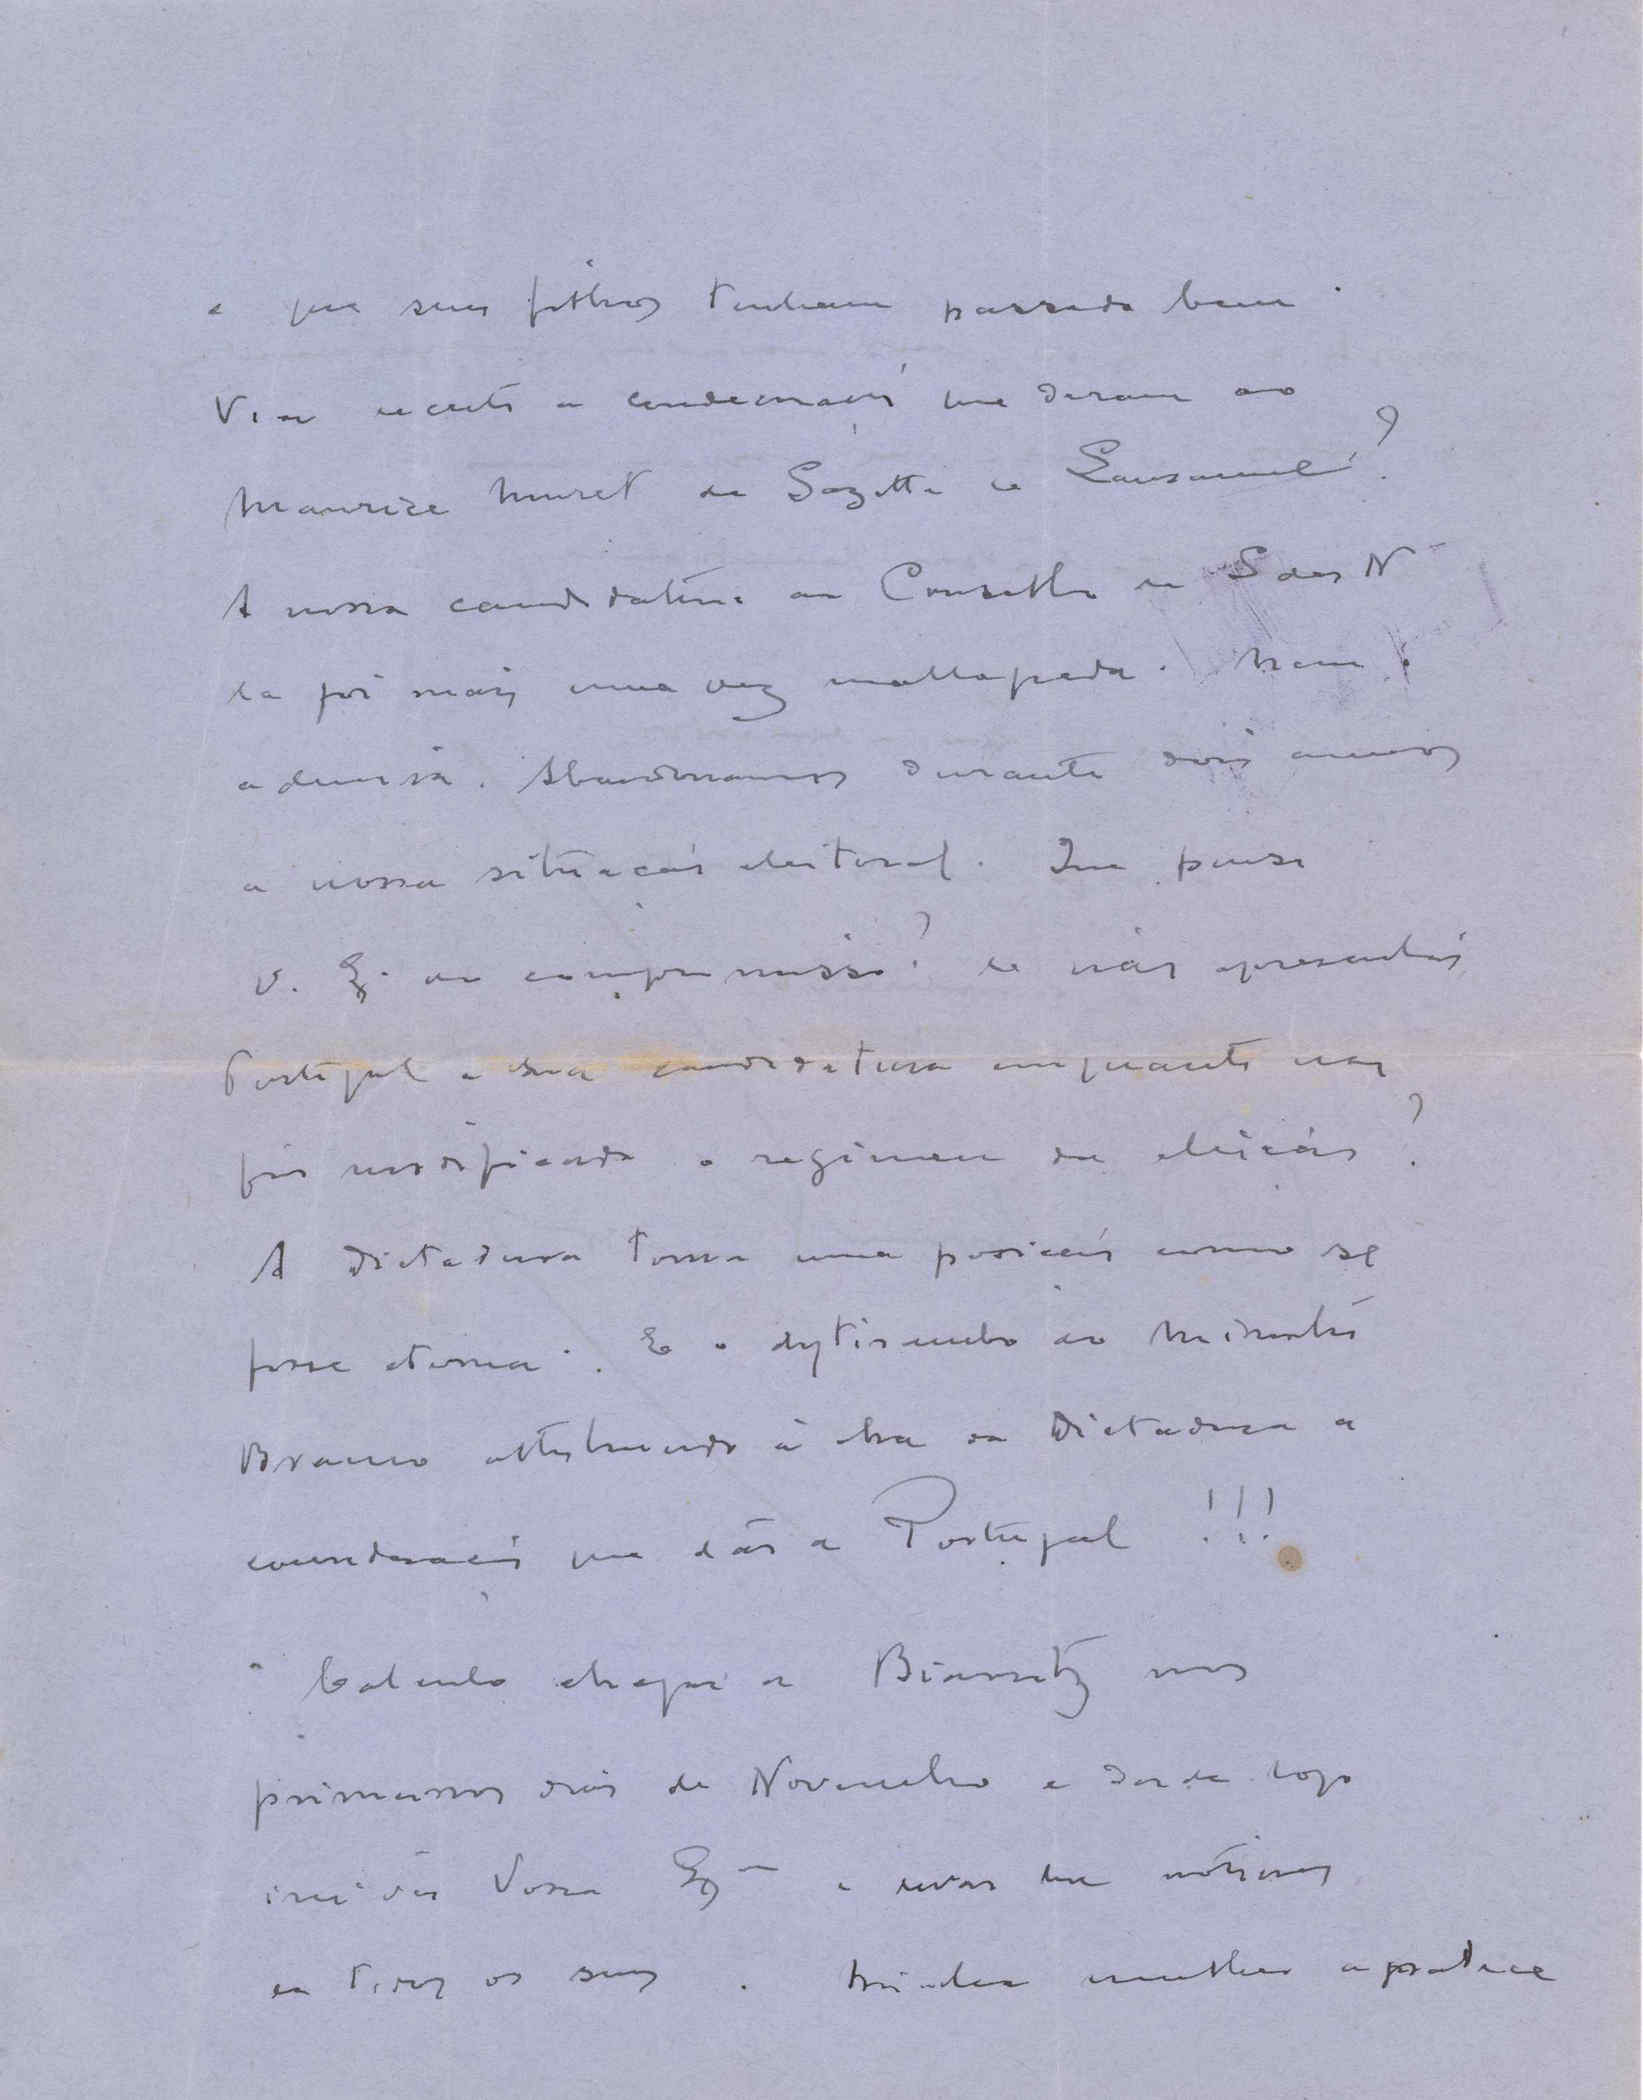 e que seus filhos tenham passado bem.
Viu a condecoração que deram ao
Maurice Muret da Gazette de Lausanne?
A nossa candidatura ao Conselho da S das N
la foi mais uma vez mallograda. Nem é
admira. Abandonamos durante dois annos
a nossa situação eleitoral. Que pensa
V. Ex. ao compromisso? de não apresentar
Portugal a sua candidatura emquanto não
fôr modificado o regimen da eleição?
A Dictadura toma uma posição como se
fosse eterna. E o ao Ministro
Branco attribuindo á obra da Dictadura a
consideração que dão a Portugal!!!
Calculo chegar a Biarritz nos
primeiros dias de Novembro e desde logo
irei vêr Vossa Exª e levar lhe noticias
de todos os seus. Minha mulher agradece